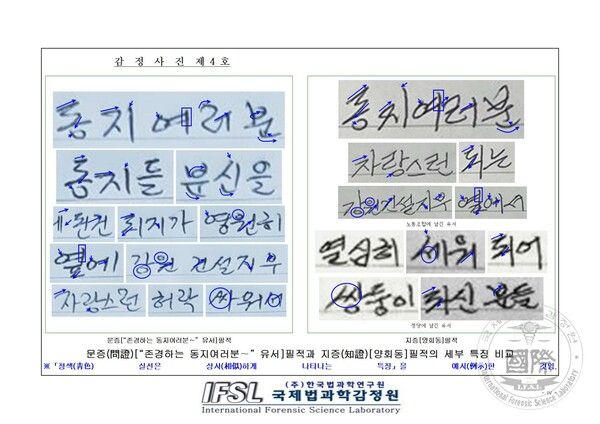 감 정 사 진 제 4 호
동지여러분
동지들 분신을
퇴지가 영원히
옆에 강원 건설지부
자랑스런 허락 싸워서
동지여러분
자랑스런 되는
강원건설지부 옆에서
노동조합에 남긴 유서
열심히 세워 되어
쌍둥이 하신 분들
정당에 남긴 유서
문증["존경하는 동지여러분~" 유서]필적
지증[양회동]필적
문증(問證)["존경하는 동지여러분~" 유서]필적과 지증(知證)[양회동]필적의 세부 특징 비교
※「청색(靑色) 실선은 상사(相似)하게 나타나는 특징」을 예시(例示)한 것임.
IFSL (주)한국법과학연구원
국제법과학감정원
International Forensic Science Laboratory
國際
I.F.S.L.